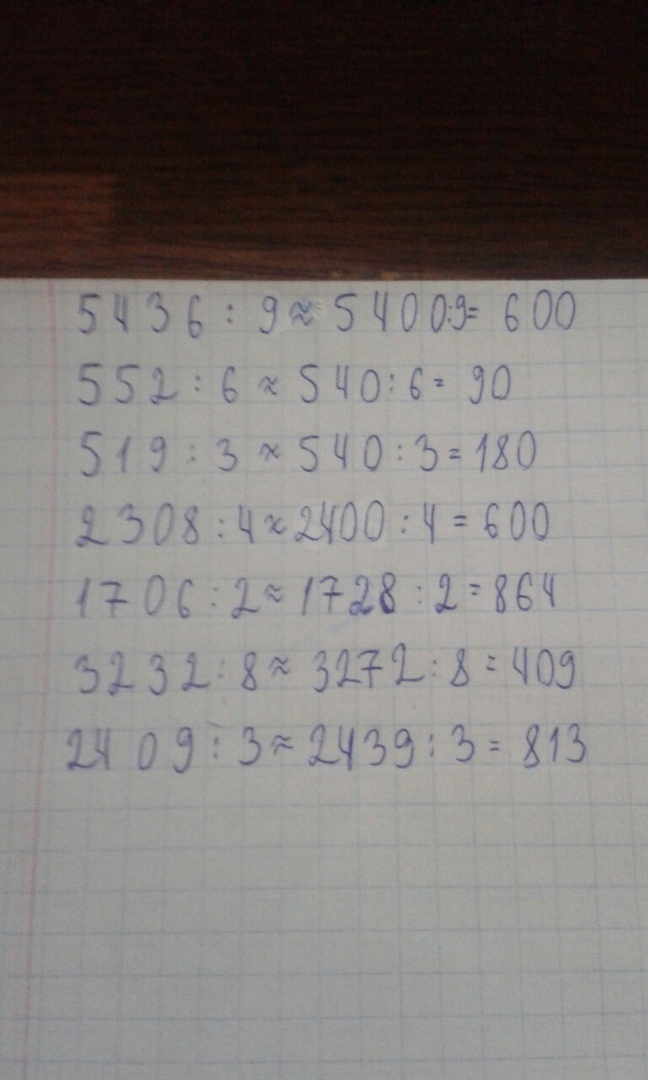 5436 : 9 ≈ 5400:9= 600
552 : 6 ≈ 540 : 6 = 90
519 : 3 ≈ 540 : 3 = 180
2308 : 4 ≈ 2400 : 4 = 600
1706 : 2 ≈ 1728 : 2 = 864
3232 : 8 ≈ 3272 : 8 = 409
2409 : 3 ≈ 2439 : 3 = 813